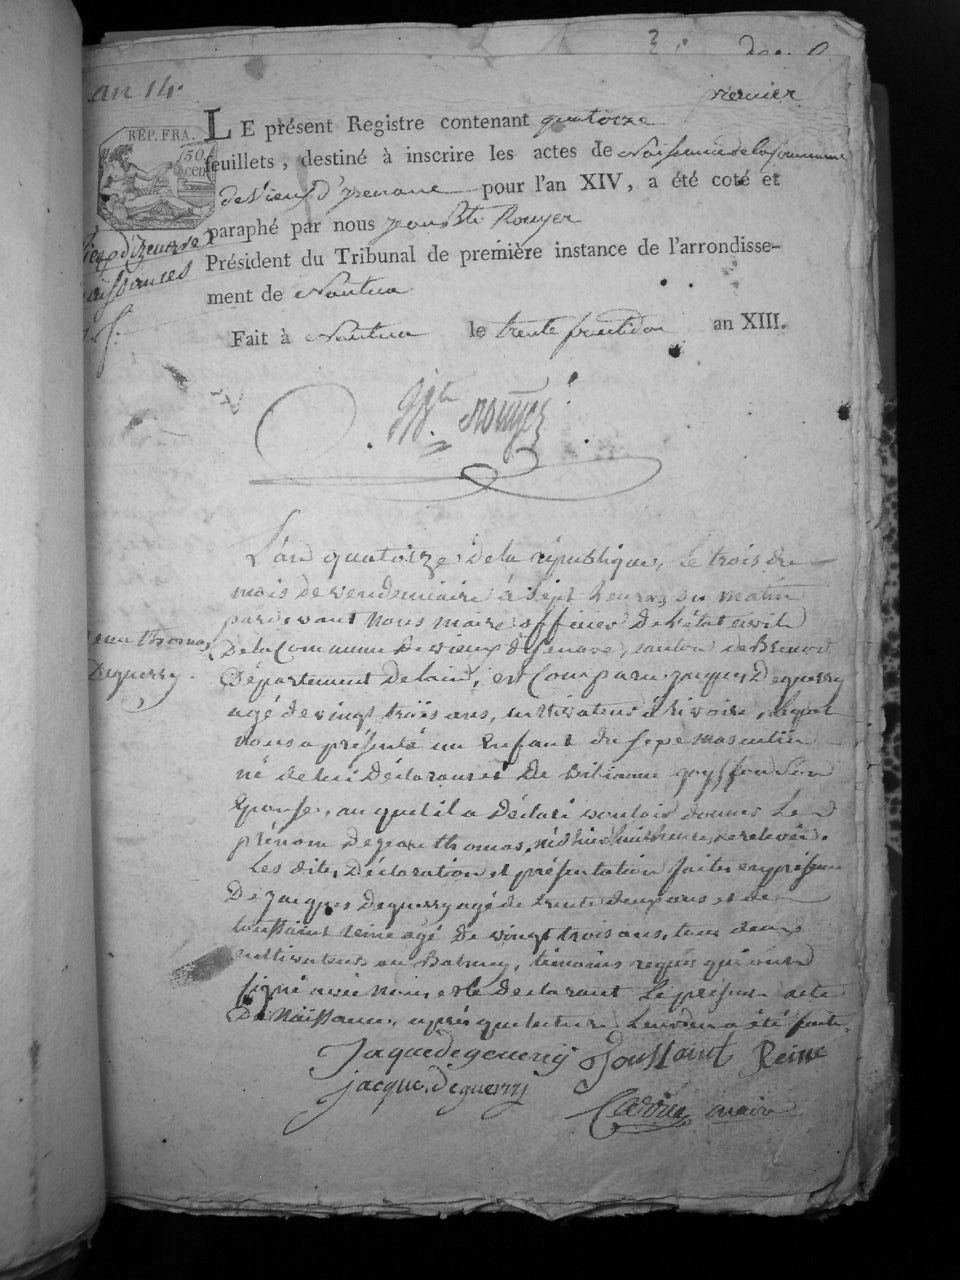 an 14.
premier
LE présent Registre contenant quatorze
REP. FRA.
50
cen
feuillets, destiné à inscrire les actes de Naissance de la Commune
de Vieux d'Izenave pour l'an XIV, a été coté et
paraphé par nous Jean Bte Rouyer
Président du Tribunal de première instance de l'arrondisse-
ment de Nantua
Vieux d'izenave
naissances
Fait à Nantua le trente fructidor an XIII.
Jn Bte Rouyer
L'an quatorze de la république, le trois du
mois de vendemiaire à sept heures du matin
pardevant nous maire officier de l'état civil
De la Commune de vieux d'isenave, canton de Brenod
Département de lain, est Comparu jacques Deguerry
agé de vingt trois ans, cultivateur à rivoire, lequel
nous a présenté un Enfant du sexe masculin
jean thomas
Deguerry.
né de lui Déclarant et De
Epouse, auquel il a Déclaré vouloir donner le
prénom de jean thomas, né d'hier huit heures de relevée.
Les dites Déclaration et présentation faites en présence
De jacques Deguerry agé de trente deux ans et de
toussaint reine agé De vingt trois ans, tous deux
cultivateurs au Balmay, témoins requis qui ont
signé avec nous et le Declarant le present acte
De Naissance, après que lecture leur en a été faite.
Jaque degeuerry Toussaint Reine
jacque deguerry
maire